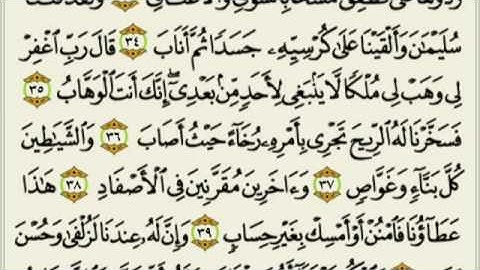 سُلَيْمَٰنَ وَأَلْقَيْنَا عَلَىٰ كُرْسِيِّهِۦ جَسَدًا ثُمَّ أَنَابَ ٣٤ قَالَ رَبِّ ٱغْفِرْ
لِى وَهَبْ لِى مُلْكًا لَّا يَنۢبَغِى لِأَحَدٍ مِّنۢ بَعْدِىٓ ۖ إِنَّكَ أَنتَ ٱلْوَهَّابُ ٣٥
فَسَخَّرْنَا لَهُ ٱلرِّيحَ تَجْرِى بِأَمْرِهِۦ رُخَآءً حَيْثُ أَصَابَ ٣٦ وَٱلشَّيَٰطِينَ
كُلَّ بَنَّآءٍ وَغَوَّاصٍ ٣٧ وَءَاخَرِينَ مُقَرَّنِينَ فِى ٱلْأَصْفَادِ ٣٨ هَٰذَا
عَطَآؤُنَا فَٱمْنُنْ أَوْ أَمْسِكْ بِغَيْرِ حِسَابٍ ٣٩ وَإِنَّ لَهُۥ عِندَنَا لَزُلْفَىٰ وَحُسْنَ